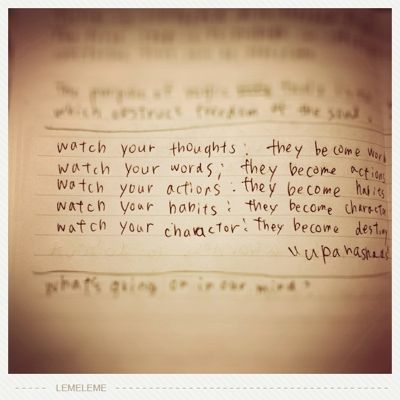 which obstruct freedom of the soul.
watch your thoughts: they become word
watch your words; they become actions
watch your actions: they become habits
watch your habits: they become character
watch your charactor: they become destiny
uupanashads
what's going on in our mind?
LEMELEME